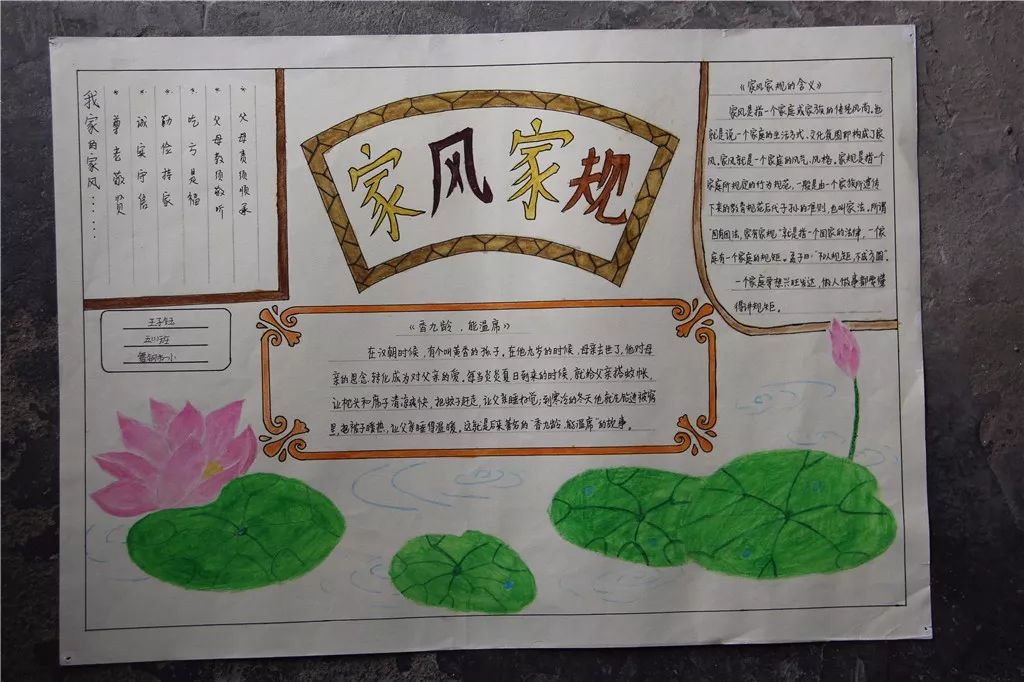 家风家规
我家的家风……
* 尊老敬贤
* 诚实守信
* 勤俭持家
* 吃亏是福
* 父母教须敬听
* 父母责须顺承
五(1)班
《香九龄,能温席》
在汉朝时候,有个叫黄香的孩子,在他九岁的时候,母亲去世了,他对母
亲的思念转化成为对父亲的爱,每当炎炎夏日到来的时候,就给父亲搭蚊帐,
让枕头和席子清凉爽快,把蚊子赶走,让父亲睡好觉;到寒冷的冬天他就先钻进被窝
里,把被子睡热,让父亲睡得温暖。这就是后来著名的“香九龄,能温席”的故事。
《家风家规的含义》
家风是指一个家庭或家族的传统风尚。也
就是说一个家庭的生活方式、文化氛围即构成了家
风。家风就是一个家庭的风气、风格。家规是指一个
家庭所规定的行为规范,一般是由一个家族所遗传
下来的教育规范后代子孙的准则,也叫家法。所谓
“国有国法,家有家规”就是指一个国家的法律,一个家
庭有一个家庭的规矩。孟子曰:“不以规矩,不成方圆”。
一个家庭要想兴旺发达,做人做事都要懂
得讲规矩。